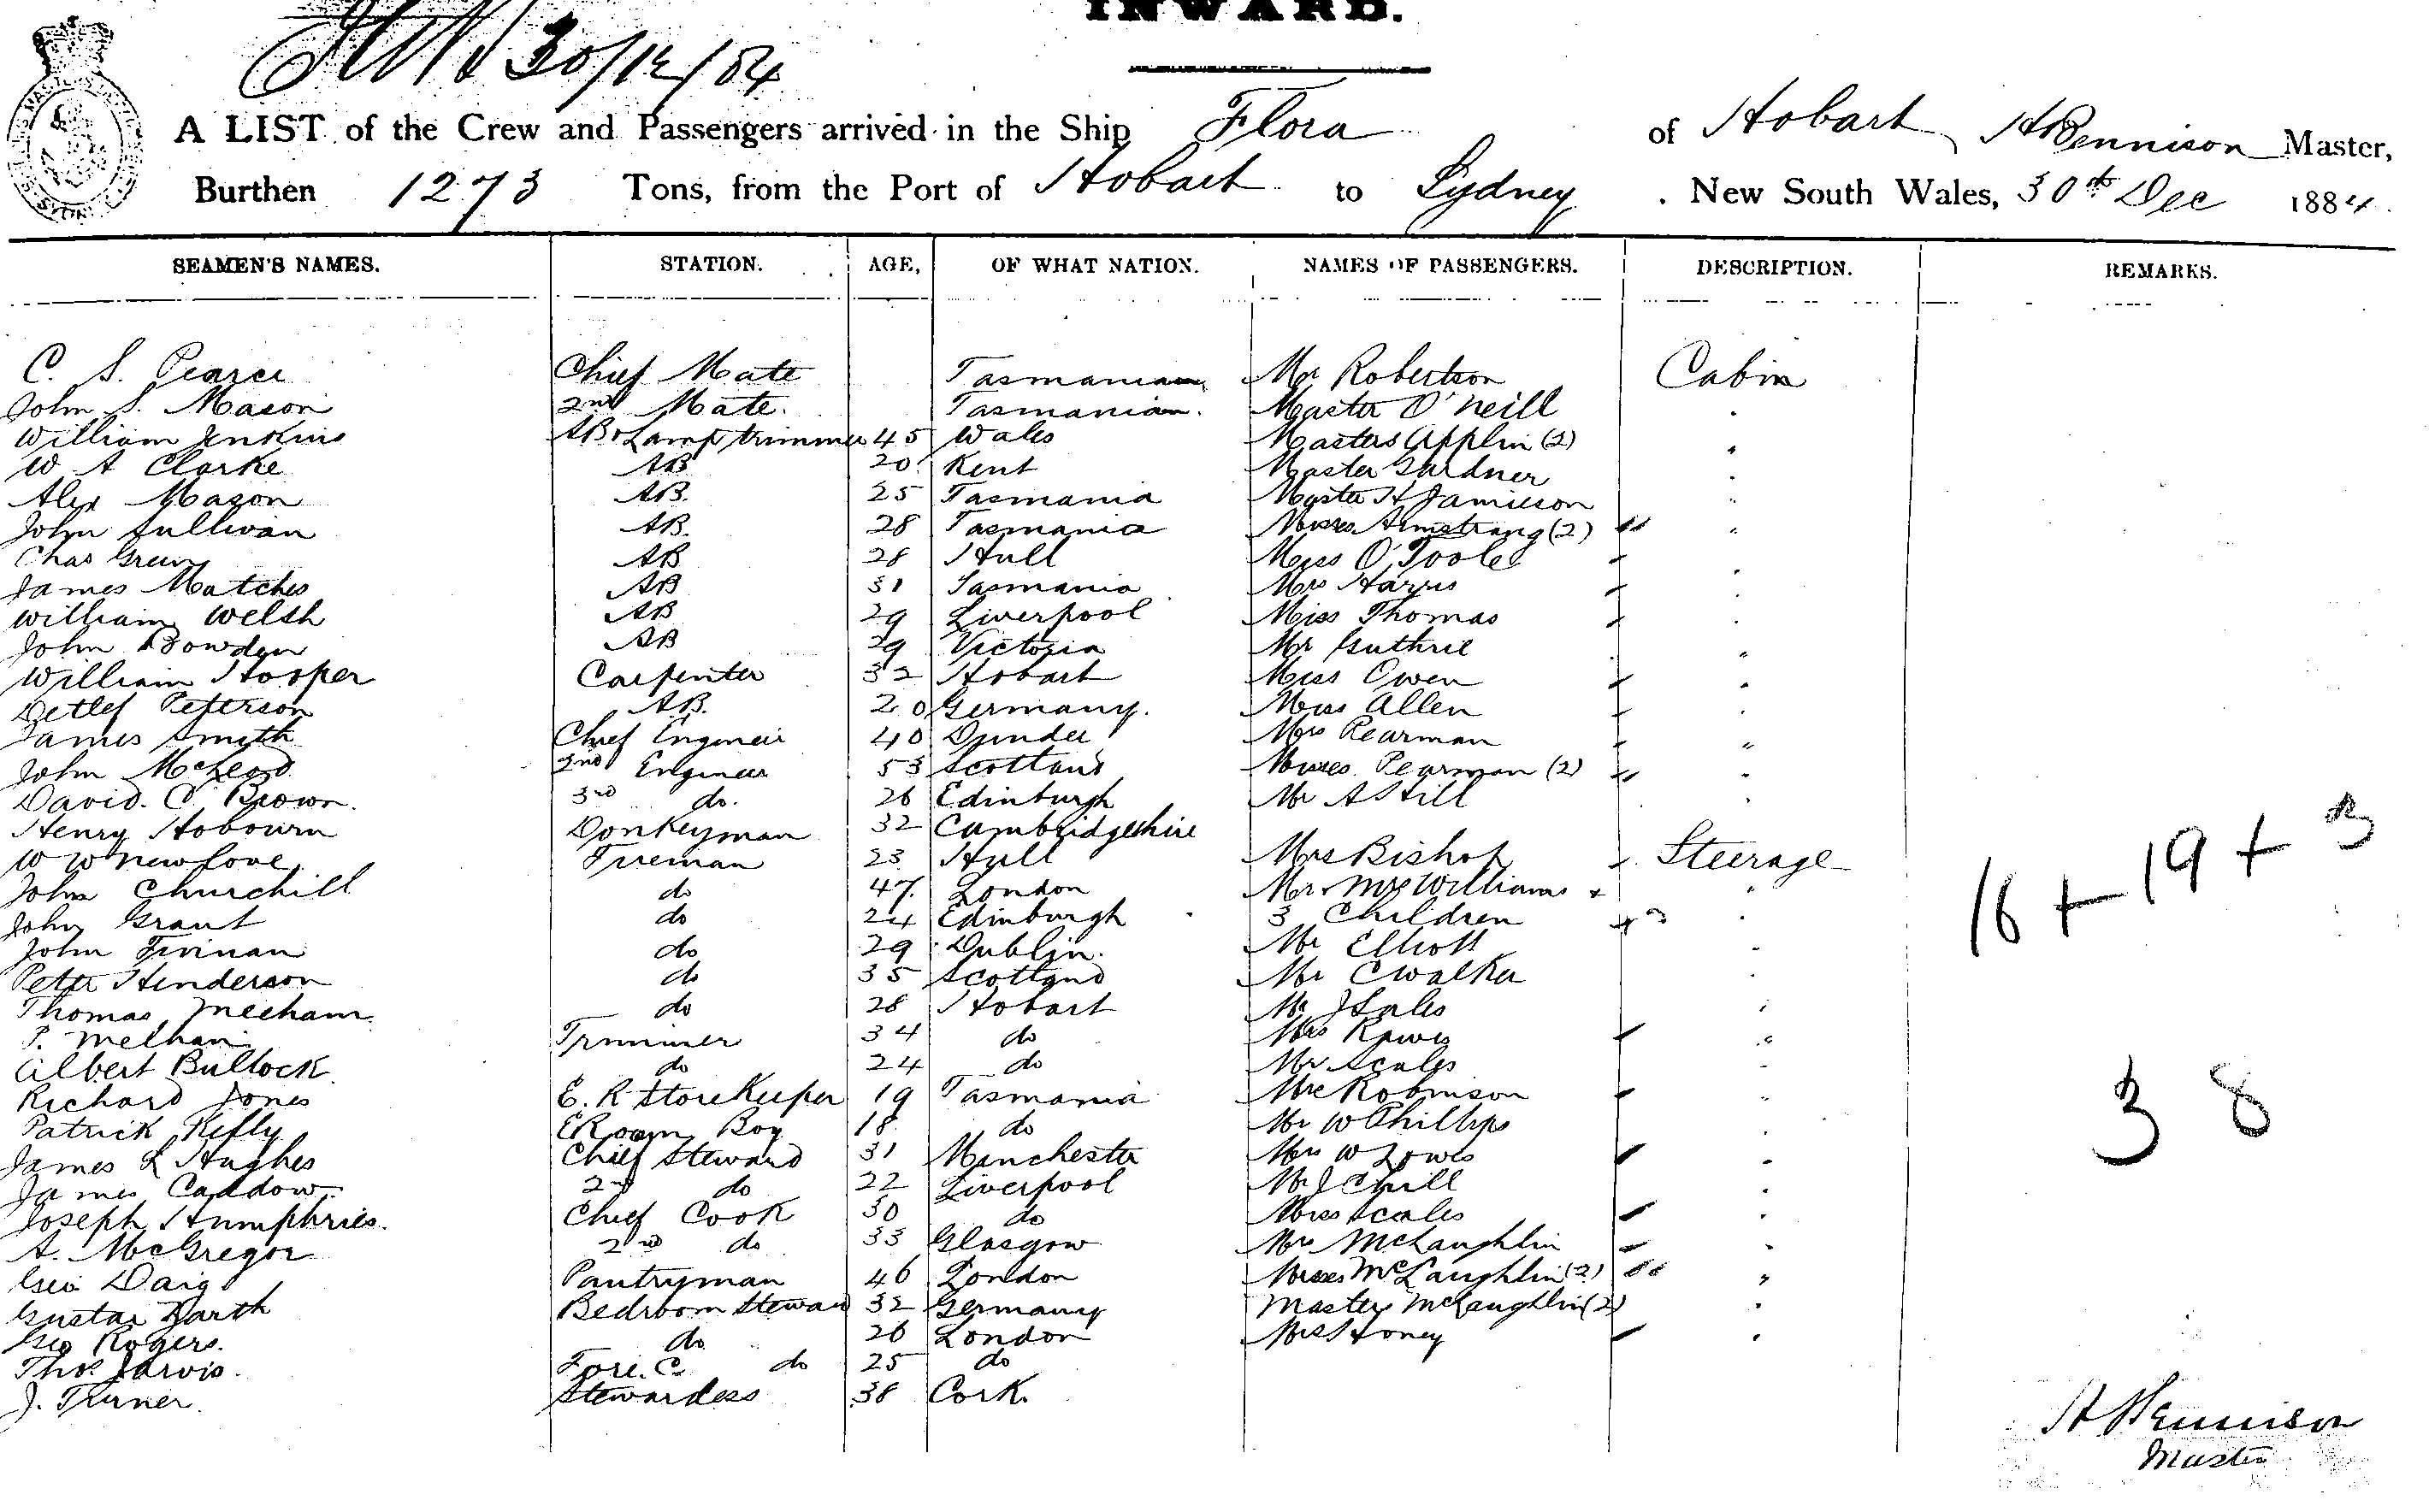 INWARD.
30/12/84
A LIST of the Crew and Passengers arrived in the Ship Flora of Hobart, H Bennison Master,
Burthen 1273 Tons, from the Port of Hobart to Sydney. New South Wales, 30th Dec 1884.
SEAMEN'S NAMES. STATION. AGE, OF WHAT NATION. NAMES OF PASSENGERS. DESCRIPTION. REMARKS.
C. S. Pearce Chief Mate Tasmanian Mr Robertson Cabin
John S. Mason 2nd Mate. Tasmanian. Master O'Neill "
William Jenkins AB & Lamp trimmer 45 Wales Masters Applin (2) "
W A Clarke AB 20 Kent Master Gardner "
Alex Mason AB. 25 Tasmania Master H Jamieson "
John Sullivan AB. 28 Tasmania Misses Armstrong (2) "
Chas Green AB 28 Hull Miss O'Toole "
James Matches AB 31 Tasmania Mrs Harris "
William Welsh AB 29 Liverpool Miss Thomas "
John Bowden AB 29 Victoria Mr Guthrie "
William Hooper Carpenter 32 Hobart Miss Owen "
Detlef Peterson AB. 20 Germany. Miss Allen "
James Smith Chief Engineer 40 Dundee Mrs Pearman "
John McLeod 2nd Engineer 53 Scotland Misses Pearman (2) "
David. C. Brown. 3rd do. 26 Edinburgh Mr A Hill "
Henry Hobourn Donkeyman 32 Cambridgeshire
W W Newlove Fireman 23 Hull Mrs Bishop Steerage
John Churchill do 47. London Mr & Mrs Williams "
John Grant do 24 Edinburgh 3 Children "
John Finnan do 29 Dublin. Mr Elliott "
Peter Henderson do 35 Scotland Mr C Walker "
Thomas Meeham do 28 Hobart Mr J Sales "
P. Meehan Trimmer 34 do Mrs "
Albert Bullock do 24 do Mr Scales "
Richard Jones E. R Storekeeper 19 Tasmania Mrs Robinson "
Patrick Kelly E Room Boy 18 do Mr W Phillips "
James L Hughes Chief Steward 31 Manchester Mrs W "
James Caddow 2nd do 22 Liverpool Mr J C Hill "
Joseph Humphries. Chief Cook 30 do Miss Scales "
A. McGregor 2nd do 33 Glasgow Mrs McLaughlin "
Geo Daig Pantryman 46 London Misses McLaughlin (2) "
Gustav Barth Bedroom Steward 32 Germany Masters McLaughlin (2) "
Geo Rogers. do 26 London Mrs Honey "
Thos Jarvis. Fore. C. do 25 do
J. Turner. Stewardess 38 Cork.
16 + 19 + 3
38
H Bennison
Master